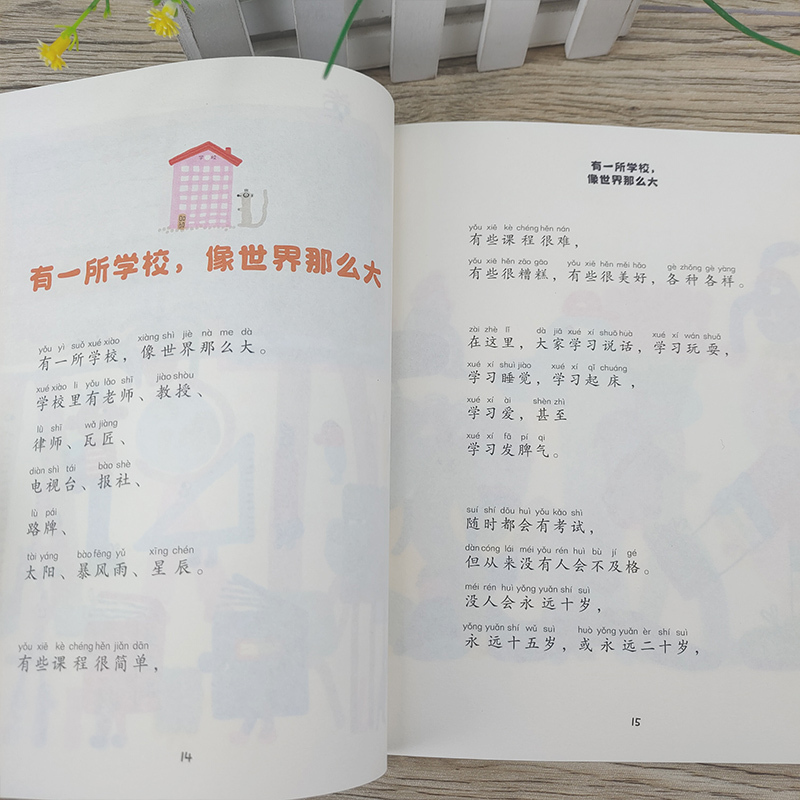 学校
有一所学校，像世界那么大
yǒu yì suǒ xué xiào xiàng shì jiè nà me dà
有一所学校，像世界那么大。
xué xiào lǐ yǒu lǎo shī jiào shòu
学校里有老师、教授、
lǜ shī wǎ jiàng
律师、瓦匠、
diàn shì tái bào shè
电视台、报社、
lù pái
路牌、
tài yáng bào fēng yǔ xīng chén
太阳、暴风雨、星辰。
yǒu xiē kè chéng hěn jiǎn dān
有些课程很简单，
14
有一所学校，
像世界那么大
yǒu xiē kè chéng hěn nán
有些课程很难，
yǒu xiē hěn zāo gāo yǒu xiē hěn měi hǎo gè zhǒng gè yàng
有些很糟糕，有些很美好，各种各样。
zài zhè lǐ dà jiā xué xí shuō huà xué xí wán shuǎ
在这里，大家学习说话，学习玩耍，
xué xí shuì jiào xué xí qǐ chuáng
学习睡觉，学习起床，
xué xí ài shèn zhì
学习爱，甚至
xué xí fā pí qi
学习发脾气。
suí shí dōu huì yǒu kǎo shì
随时都会有考试，
dàn cóng lái méi yǒu rén huì bù jí gé
但从来没有人会不及格。
méi rén huì yǒng yuǎn shí suì
没人会永远十岁，
yǒng yuǎn shí wǔ suì huò yǒng yuǎn èr shí suì
永远十五岁，或永远二十岁，
15